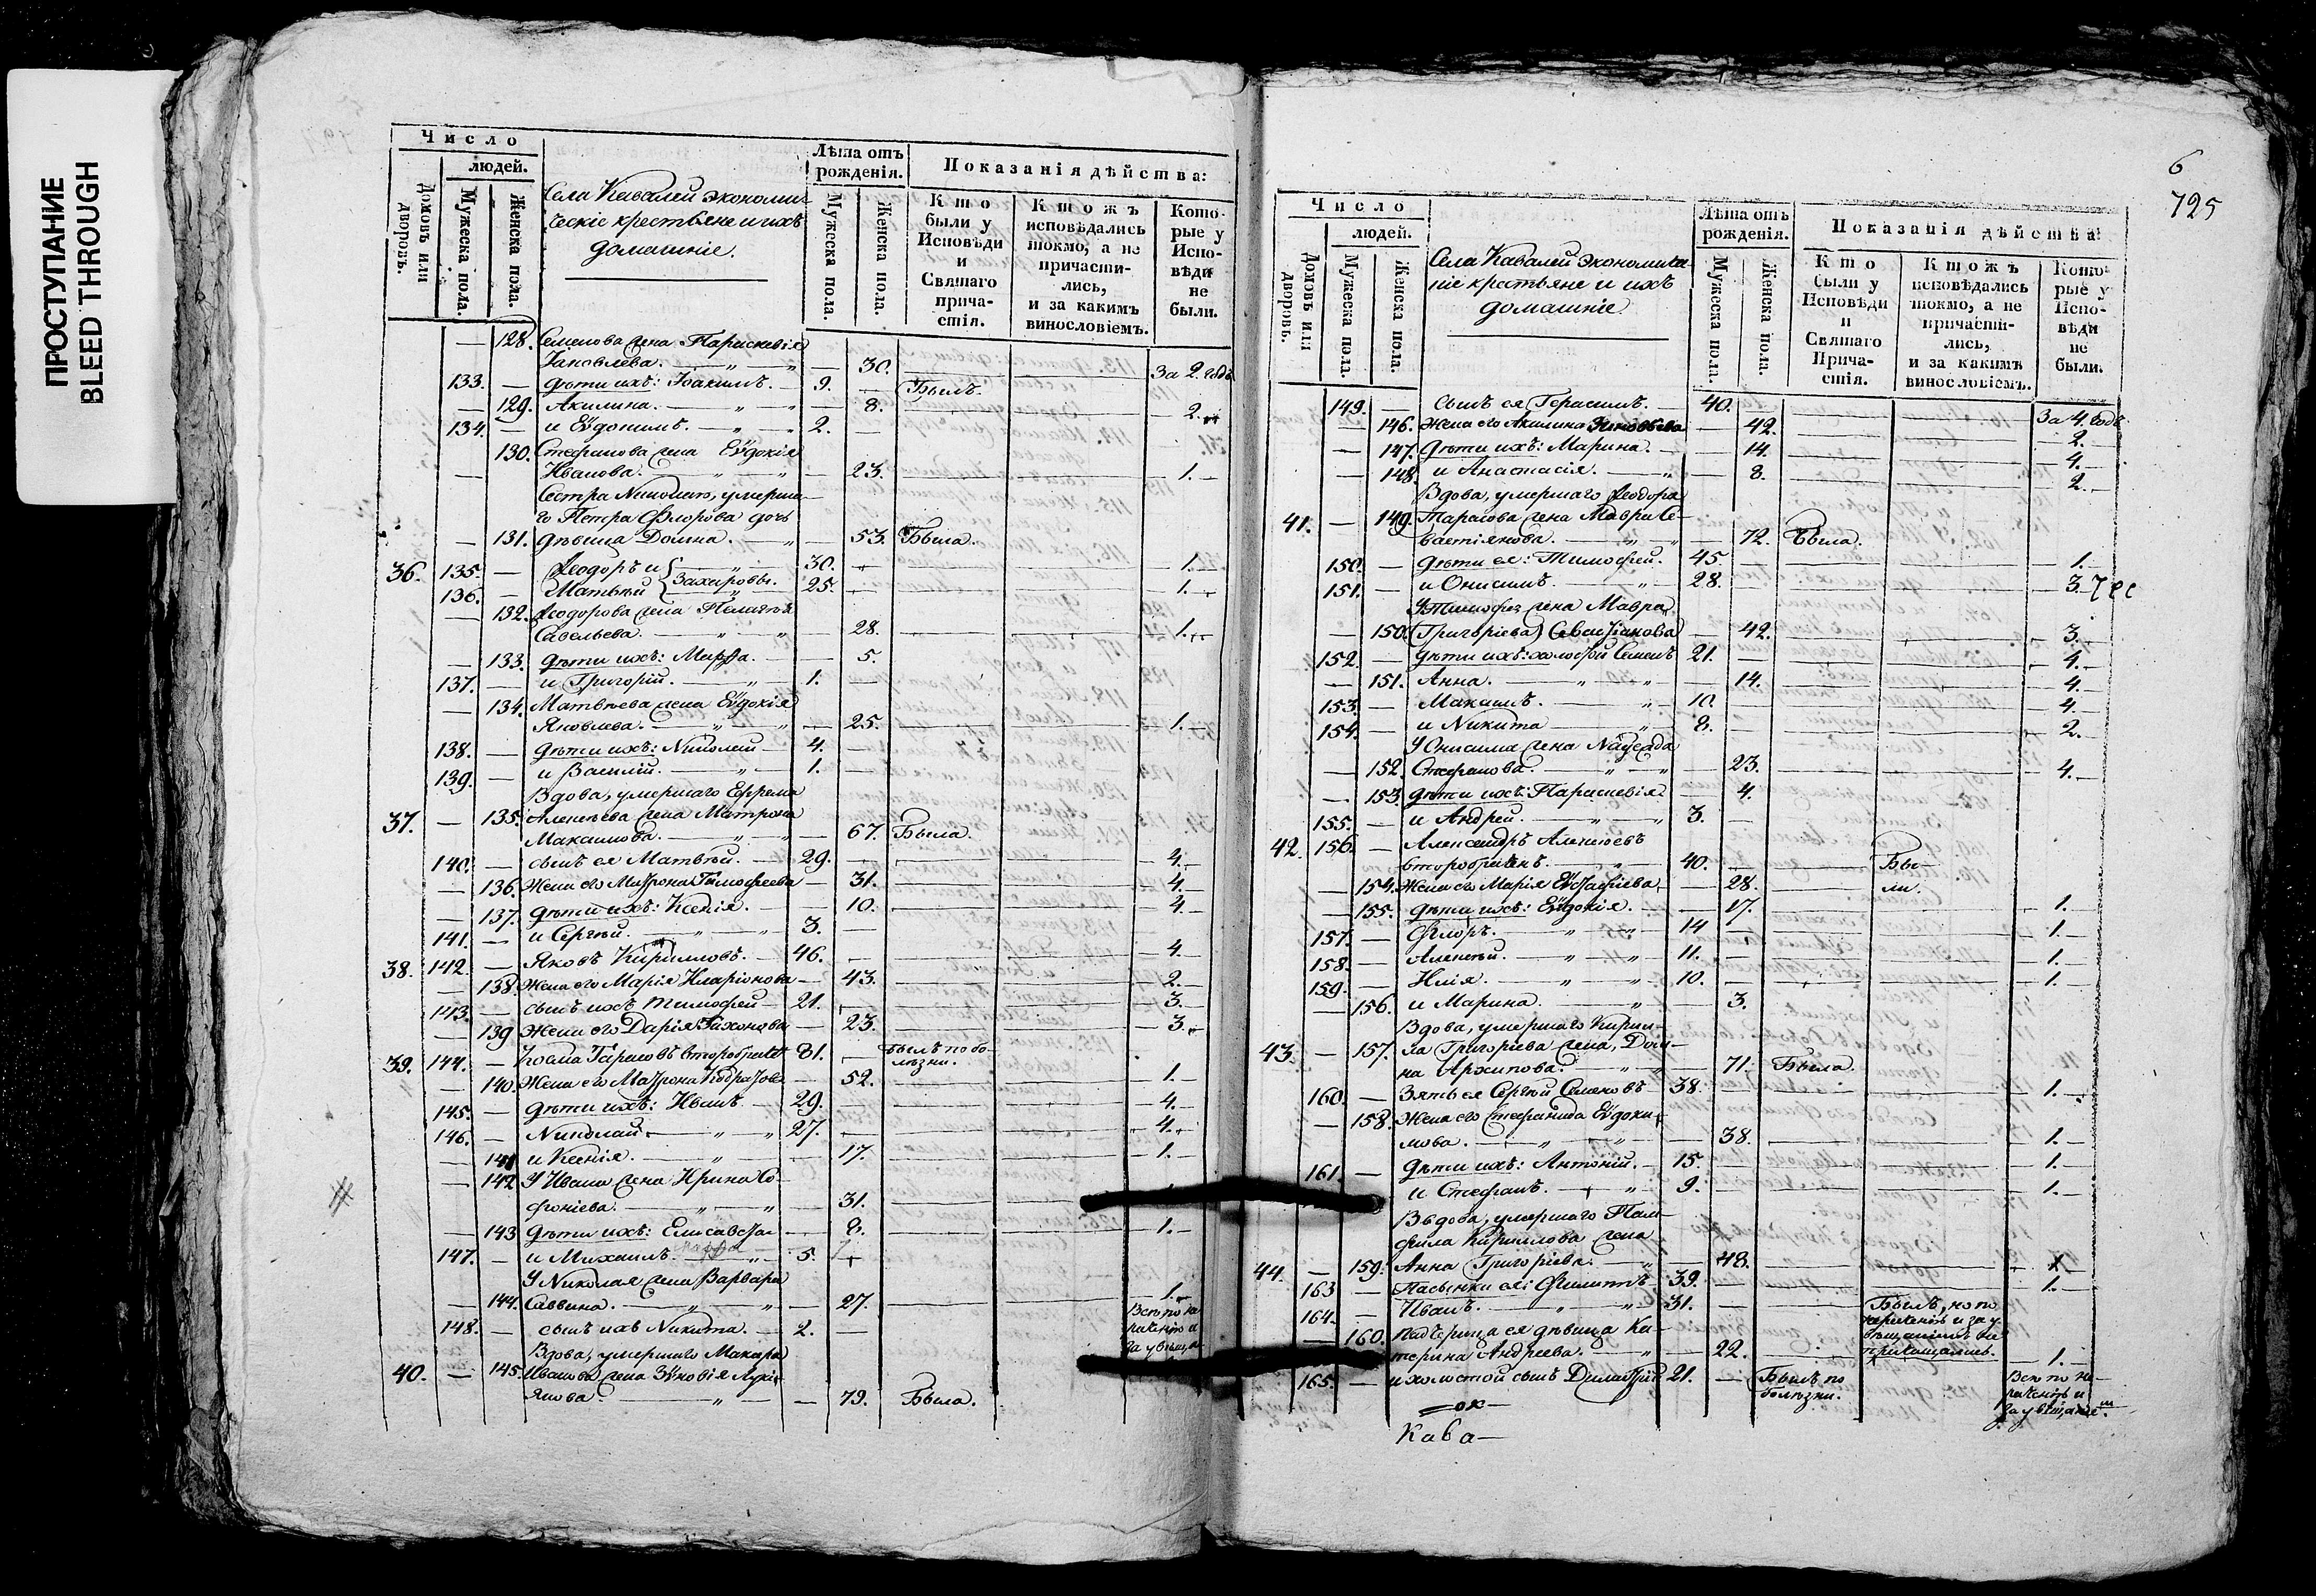 ПРОСТУПАНИЕ
BLEED THROUGH
Число
людей.
Домовъ или дворовъ.
Мужеска пола.
Женска пола.
Села Кавалей экономи-
ческіе крестьяне и ихъ
домашніе.
Лѣта отъ рожденія.
Мужеска пола.
Женска пола.
Показанія дѣйства:
Кто были у Исповѣди и Святаго причастія.
Ктожъ исповѣдались токмо, а не причастились, и за какимъ винословіемъ.
Которые у Исповѣди не были.
— 128. Семенова жена Параскевія
Іаковлева. — 30. За 2. годъ
133. — дѣти ихъ: Іоакимъ. 9. — Былъ.
— 129. Акилина. — 8. 2.
134. — и Еѵдокимъ. 2. —
130. Стефанова жена Еѵдокія
— Иванова. — 23. 1.
Сестра Николаю, умерша-
го Петра Флорова дочь
— 131. дѣвица Домна. — 53. Была.
36. 135. — Ѳеодоръ и 30. 1.
136. — Матвѣй Захаровы. 25. 1.
— 132. Ѳеодорова жена Пелагея
Савельева. 28. 1.
— 133. дѣти ихъ: Марѳа. — 5.
137. — и Григорій. 1. —
— 134. Матвѣева жена Еѵдокія
Яковлева. — 25. 1.
138. — дѣти ихъ: Николай 4. —
139. — и Василій. 1. —
Вдова, умершаго Ефрема
37. — 135. Алексѣева жена Матрона
Максимова. — 67. Была.
140. — сынъ ея Матвѣй. 29. 4.
— 136. Жена его Матрона Тимофеева — 31. 4.
— 137. дѣти ихъ: Ксенія. — 10. 4.
141. — и Сергѣй. 3. —
38. 142. — Яковъ Кирилловъ. 46. — 4.
— 138. Жена его Марія Иларіонова — 43. 2.
143. — сынъ ихъ Тимофей 21. — 3.
— 139 Жена его Дарія Тихонова — 23. 3.
39. 144. — Косма Тарасовъ второбрачн 81. — Былъ по бо-
лѣзни.
— 140. Жена его Матрона — 52. 1.
145. — дѣти ихъ: Иванъ 29. 4.
146. — Николай. 27. — 4.
— 141 и Ксенія. — 17. 1.
— 142 У Ивана жена Ирина Со-
фоніева. 31.
— 143 дѣти ихъ: Елисавета — 8. 1.
147. — и Михаилъ. 5.
У Николая жена Варвара
— 144. Саввина. — 27. 1.
148. — сынъ ихъ Никита. 2. —
Всѣ по не-
раченію и
за увѣща-
Вдова, умершаго Макара
40. — 145. Иванова жена Зиновія Лукі-
янова. — 79. Была.
6
725
Число
людей.
Домовъ или дворовъ.
Мужеска пола.
Женска пола.
Села Кавалей экономиче-
скіе крестьяне и ихъ
домашніе
Лѣта отъ рожденія.
Мужеска пола.
Женска пола.
Показанія дѣйства:
Кто были у Исповѣди и Святаго Причастія.
Ктожъ исповѣдались токмо, а не причастились, и за какимъ винословіемъ.
Которые у Исповѣди не были.
149. — сынъ ея Герасимъ. 40. За 4. годъ
— 146. Жена его Акилина — 42. 2.
— 147. дѣти ихъ: Марина. — 14. 4.
148. и Анастасія. — 8. 2.
Вдова, умершаго Ѳеодора
41. — 149. Тарасова жена Мавра Се-
вастіянова. — 72. Была.
150. — дѣти ея: Тимофей. 45. 1.
151. — и Онисимъ. 28. 3.
У Тимофея жена Мавра
— 150. (Григоріева) — 42. 3.
152. — дѣти ихъ: холостой Семенъ 21. — 4.
— 151. Анна. — 14. 4.
153. — Максимъ. 10. 4.
154. — и Никита 8. — 2.
У Онисима жена
— 152. Стефанова. — 23. 4.
— 153. дѣти ихъ: Параскевія — 4.
155. — и Андрей. 3. —
42. 156. — Александръ Алексѣевъ
второбрачнъ. 40. — Бы-
— 154. Жена его Марія Еѵстафіева — 28. ли.
— 155. дѣти ихъ: Еѵдокія. — 17. 1.
157. — Флоръ. 14 — 1.
158. — Алексѣй. 11. — 1.
159. — Илія. 10. — 1.
— 156. и Марина. 3.
Вдова, умершаго Кирил-
43. — 157. ла Григоріева жена, Дом-
на Архипова. — 71. Была.
160. — Зять ея Сергѣй Семеновъ 38. — 1.
— 158. Жена его Стефанида Еѵдоки-
мова. — 38. 1.
161. — дѣти ихъ: Антоній. 15. — 1.
и Стефанъ. 9. — 1.
Вдова, умершаго Пам-
фила Кириллова жена
44. — 159. Анна Григоріева. — 48.
163 — Пасынки ея: Филиппъ 39. — 1.
164. — Иванъ. 31. — Былъ, но по
нераченію и за у-
вѣщаніемъ не
причащались.
— 160. падчерица ея дѣвица Ка-
терина Андреева. — 22. 1.
165. — и холостой сынъ Димитрій 21. — Былъ по
болѣзни.
Всѣ по не-
раченію и
за увѣщаніем
Кава—